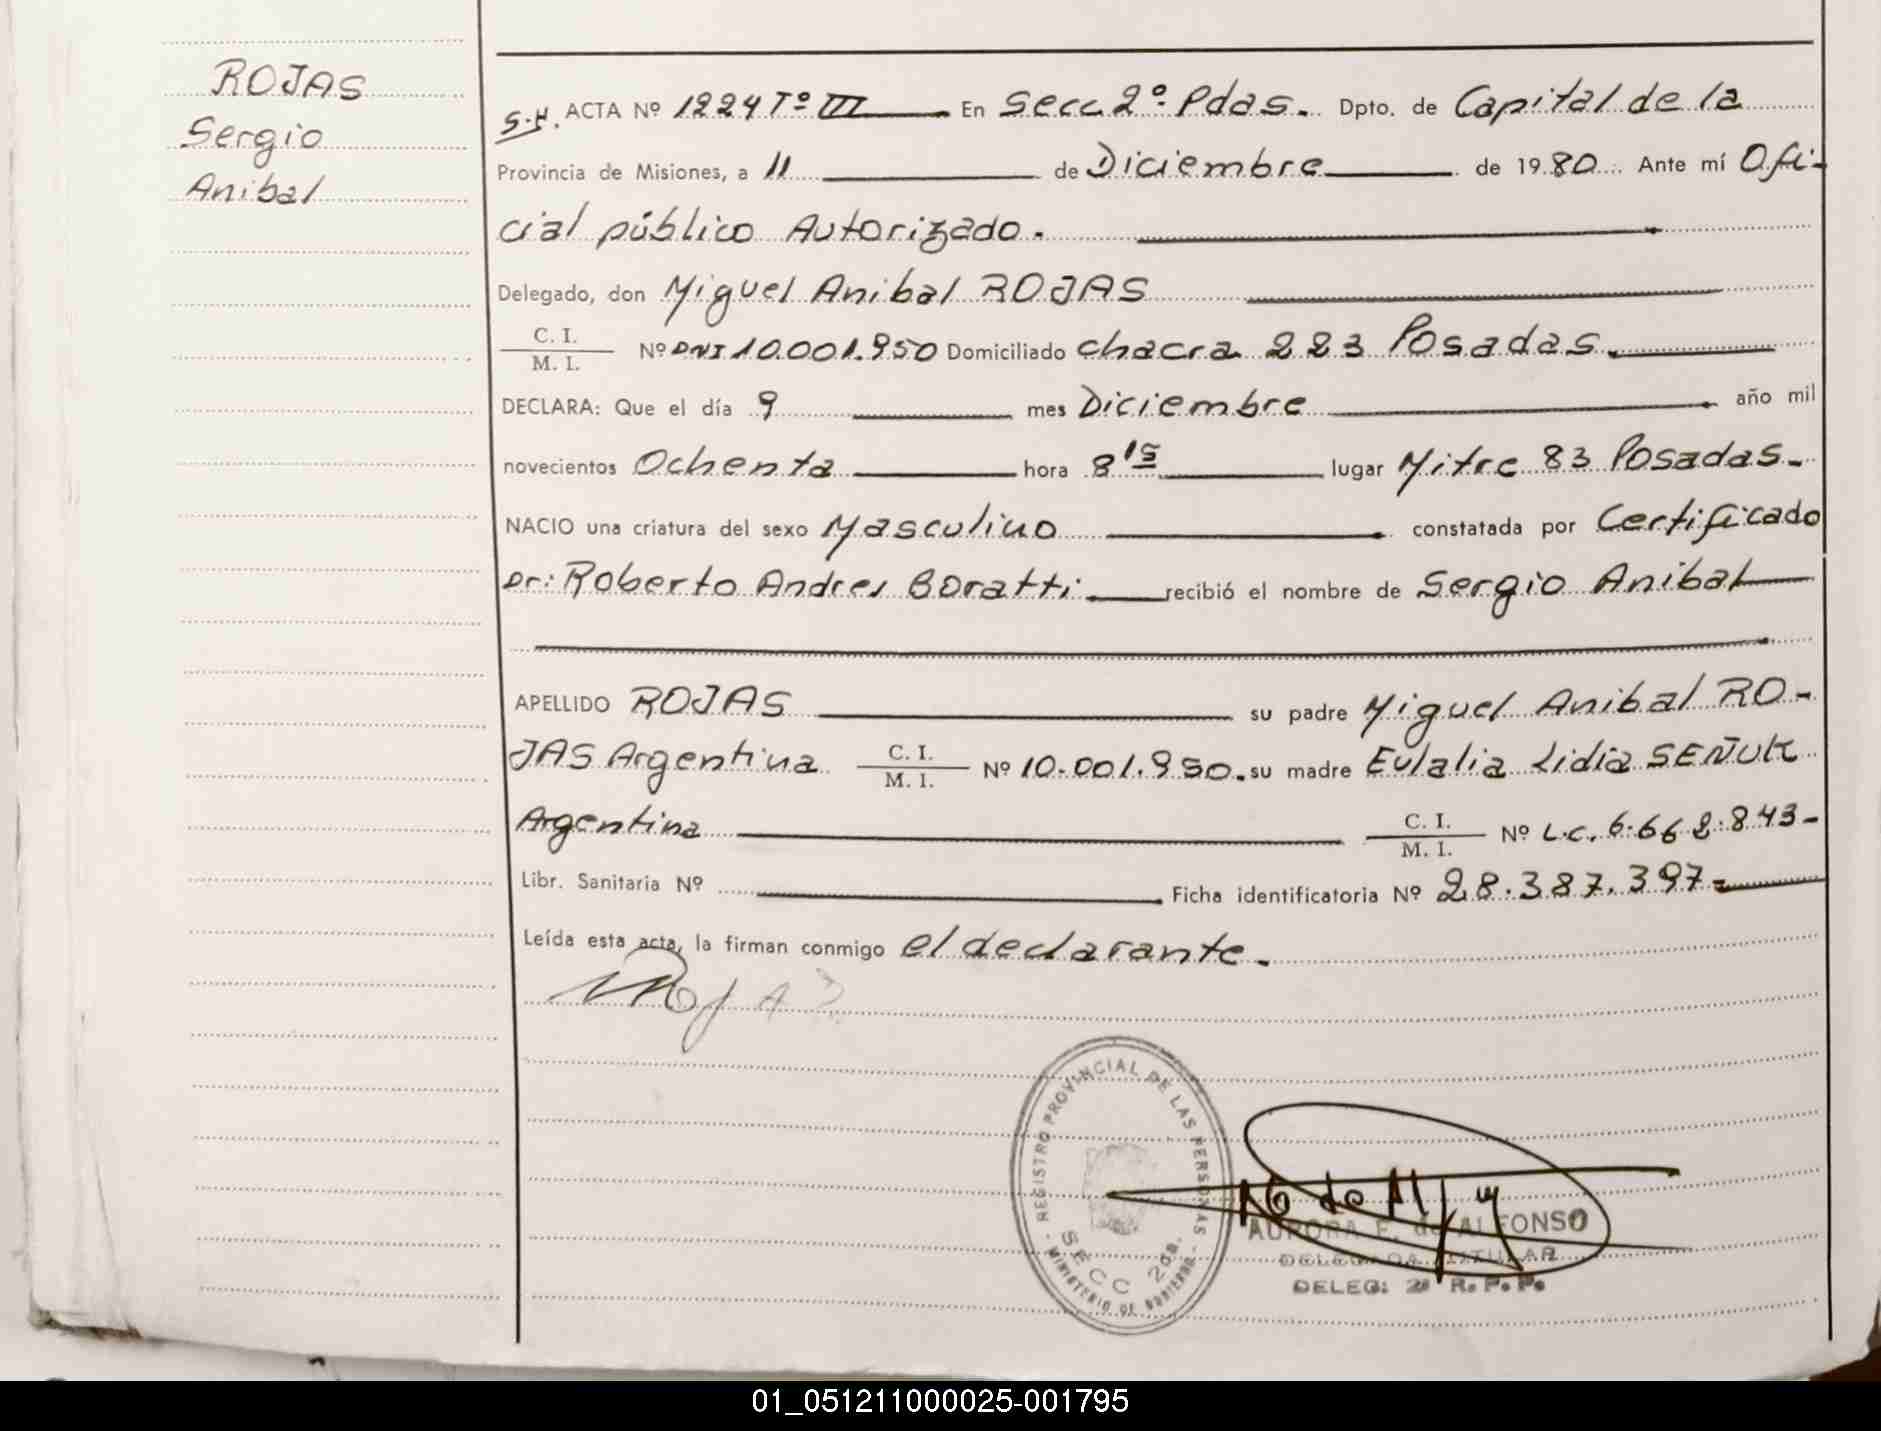 ROJAS
Sergio
Anibal
S.H. ACTA Nº 1224 Tº III En Secc 2º Pdas. Dpto. de Capital de la
Provincia de Misiones, a 11 de Diciembre de 1980 Ante mí Ofi-
cial público Autorizado.
Delegado, don Miguel Anibal ROJAS
C. I.
M. I.
Nº DNI 10.001.950 Domiciliado chacra 223 Posadas.
DECLARA: Que el día 9 mes Diciembre año mil
novecientos Ochenta hora 8 15 lugar Mitre 83 Posadas.
NACIO una criatura del sexo Masculino constatada por Certificado
Dr: Roberto Andres Boratti recibió el nombre de Sergio Anibal
APELLIDO ROJAS su padre Miguel Anibal RO-
JAS Argentina C. I.
M. I.
Nº 10.001.950. su madre Eulalia Lidia SEÑUK
Argentina C. I.
M. I.
Nº L.C. 6.662.843-
Libr. Sanitaria Nº Ficha identificatoria Nº 28.387.397-
Leída esta acta, la firman conmigo el declarante.
Rojas
REGISTRO PROVINCIAL DE LAS PERSONAS
- MINISTERIO DE GOBIERNO -
SECC 2da.
AURORA E. de ALFONSO
DELEGADA TITULAR
DELEG: 2ª R. P. P.
01_051211000025-001795